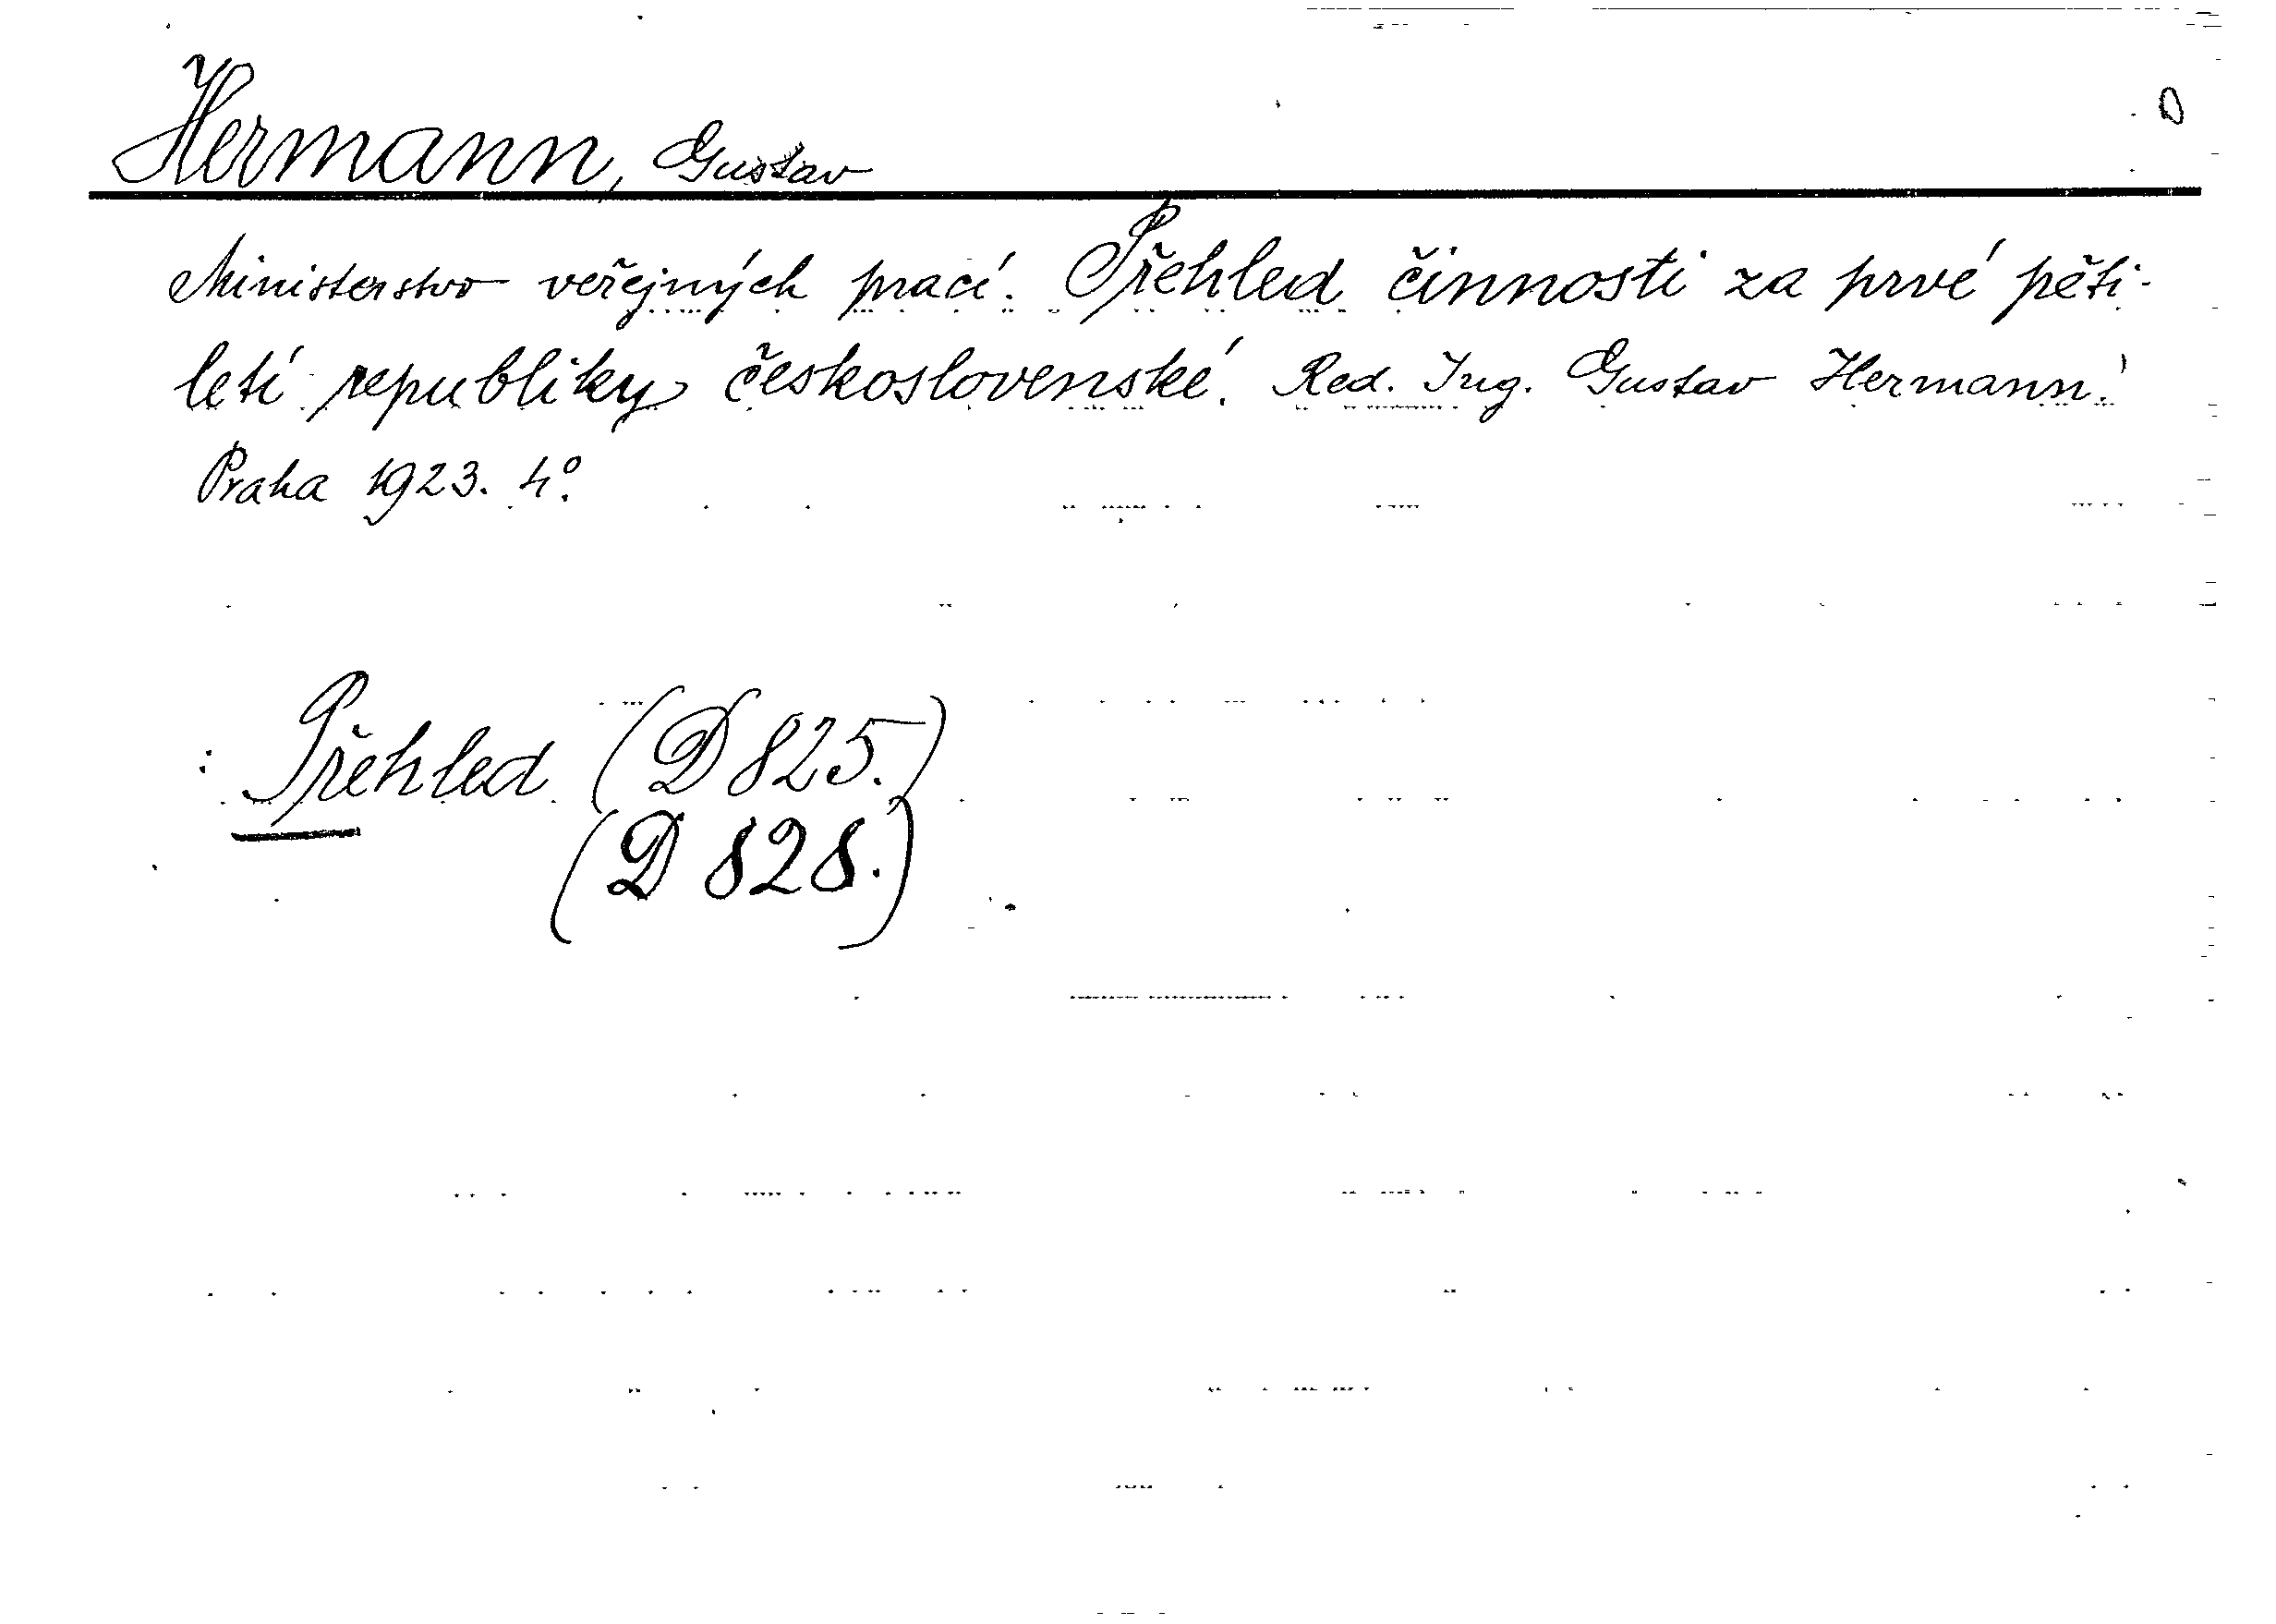 Hermann, Gustav
Ministerstvo veřejných prací. Přehled činnosti za prvé pěti-
letí republiky československé. Red. Ing. Gustav Hermann.
Praha 1923. 4°.
: Přehled (D 825.)
(D 828.)